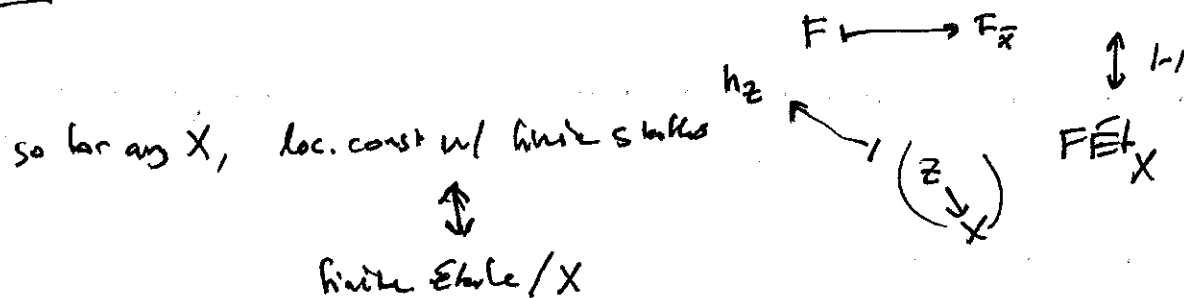 F ↦ F_x̄
↕ 1-1
h_Z
so for any X, loc. const w/ finite stalks
FÉt_X
(Z ↓ X)
↕
finite Étale / X